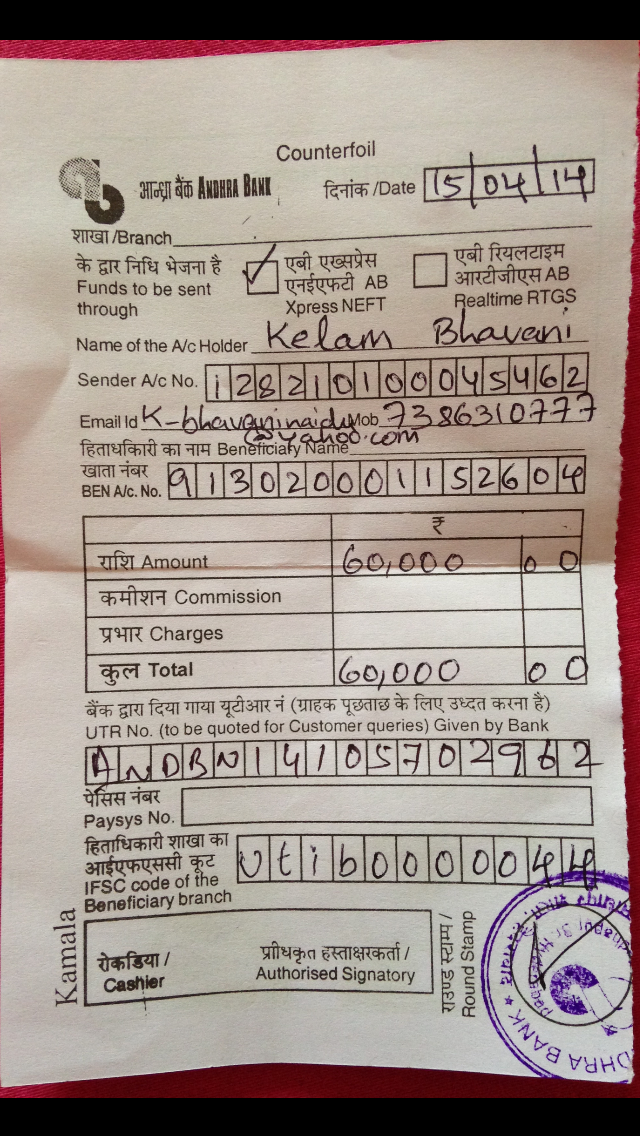 Counterfoil
आन्ध्रा बैंक ANDHRA BANK
दिनांक /Date 15/04/14
शाखा /Branch
के द्वार निधि भेजना है
Funds to be sent
through
एबी एख्सप्रेस
एनईएफटी AB
Xpress NEFT
एबी रियलटाइम
आरटीजीएस AB
Realtime RTGS
Name of the A/c Holder Kelam Bhavani
Sender A/c No. 128210100045462
Email Id K-bhavaninaidu Mob 7386310777
@yahoo.com
हिताधकिारी का नाम Beneficiary Name
खाता नंबर
BEN A/c. No. 913020001152604
₹
राशि Amount 60,000 00
कमीशन Commission
प्रभार Charges
कुल Total 60,000 00
बैंक द्वारा दिया गाया यूटीआर नं (ग्राहक पूछताछ के लिए उध्दत करना है)
UTR No. (to be quoted for Customer queries) Given by Bank
ANDBN14105702962
पेसिस नंबर
Paysys No.
हिताधिकारी शाखा का
आईएफएससी कूट
IFSC code of the
Beneficiary branch
Utib0000044
Kamala
रोकडिया /
Cashier
प्राीधिकृत हस्ताक्षरकर्ता /
Authorised Signatory
राउण्ड स्टाम्प /
Round Stamp
DHRA BANK